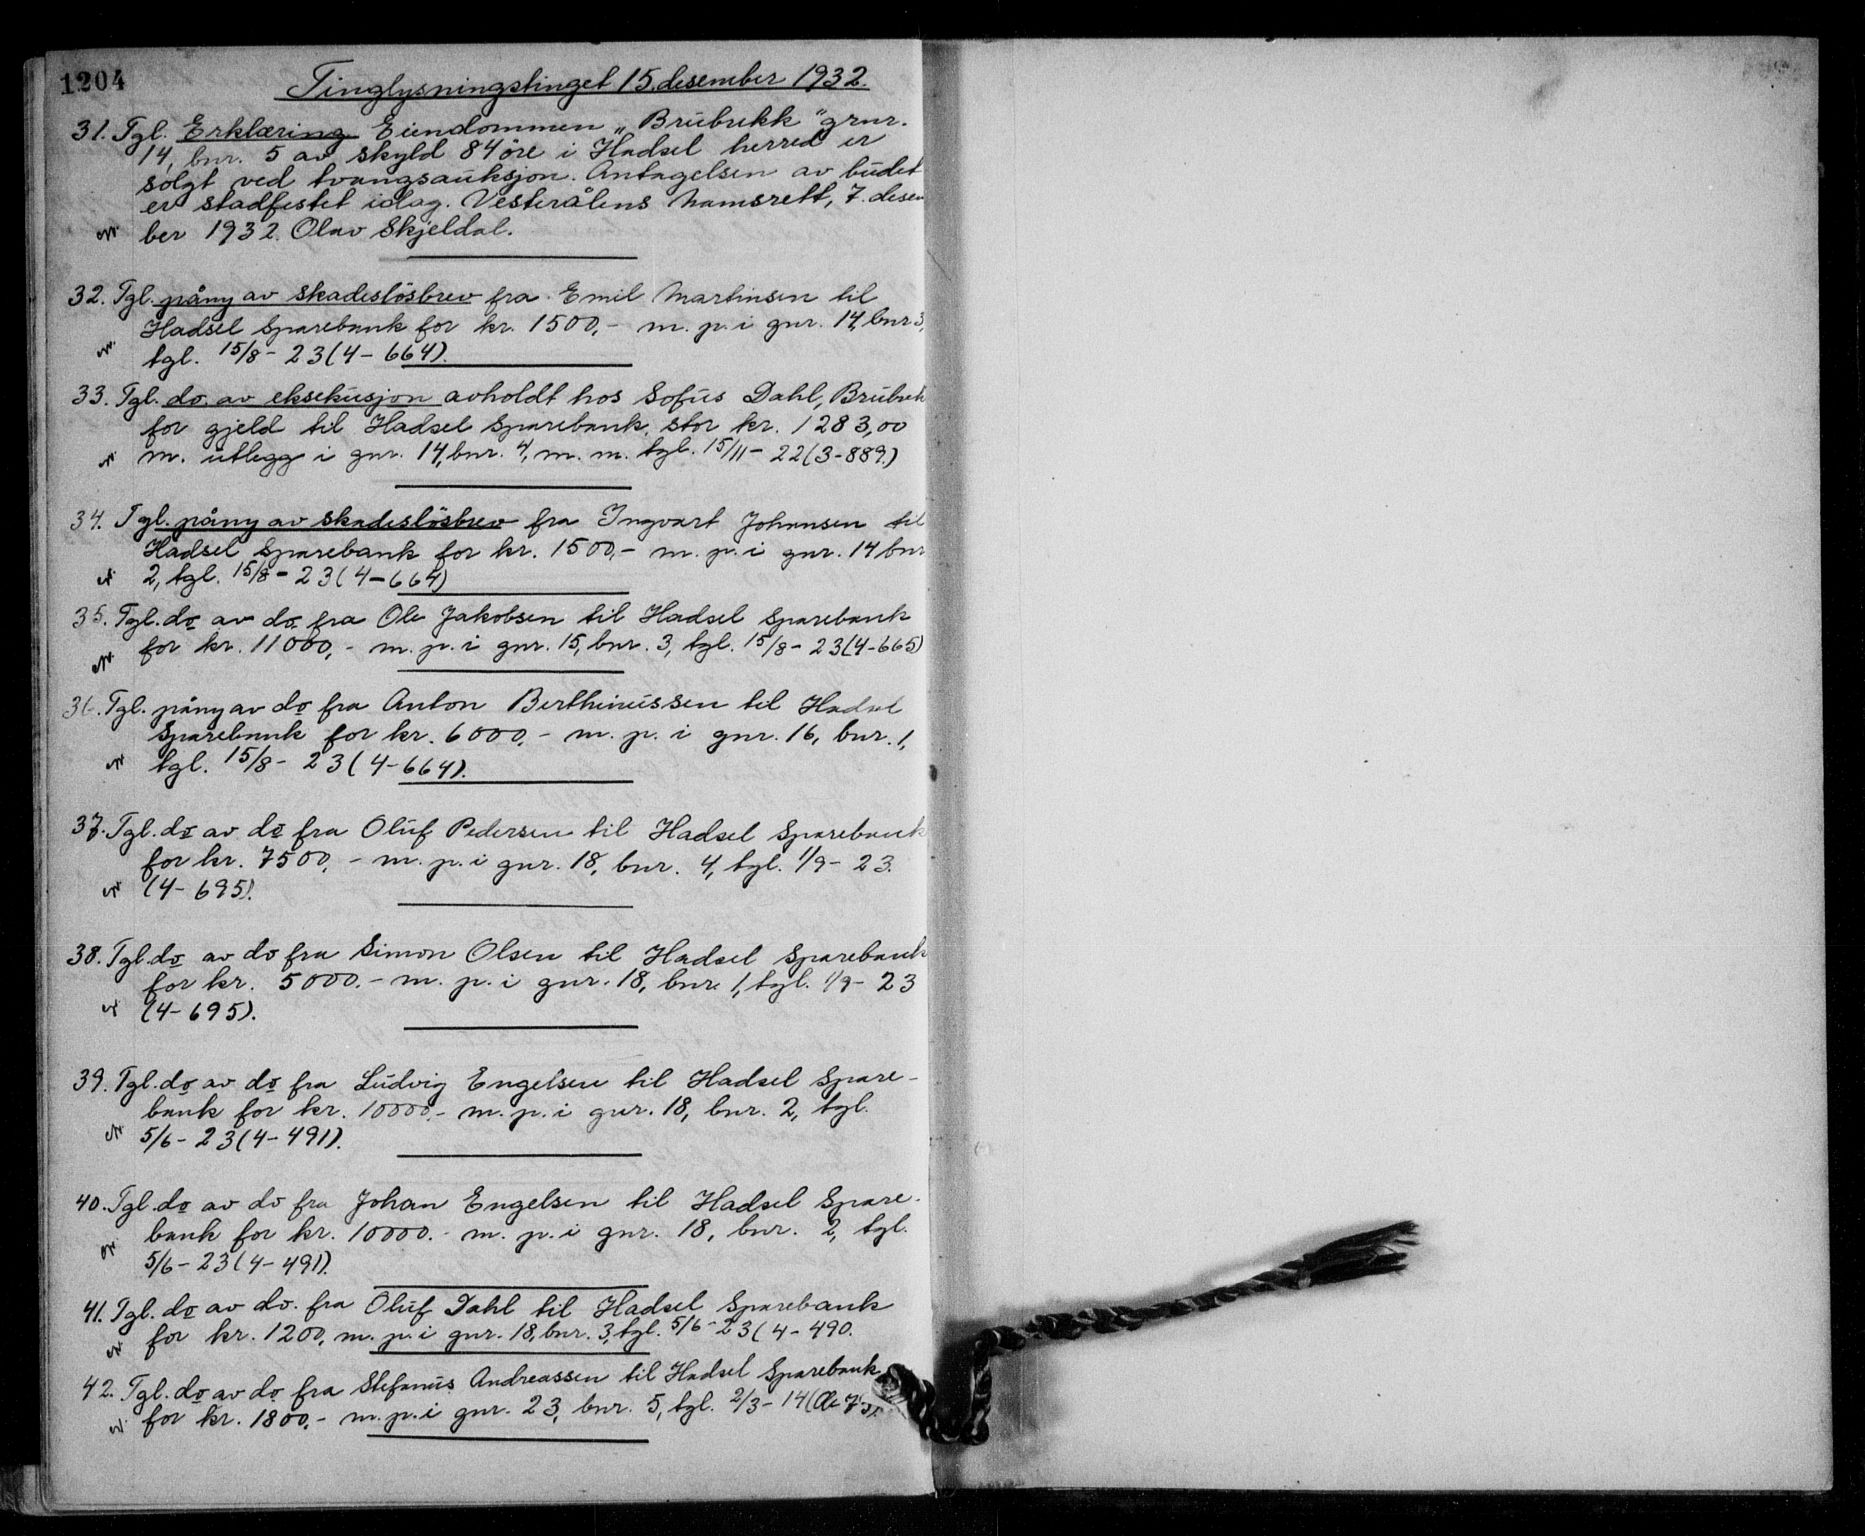 1204
Tinglysningstinget 15. desember 1932.
31. Tgl. Erklæring Eiendommen „Brubrekk" grnr.
14, bnr. 5 av skyld 84 öre i Hadsel herred er
solgt ved tvangsauksjon. Antagelsen av budet
er stadfestet idag. Vesterålens Namsrett, 7. desem
ber 1932. Olav Skjeldal.
32. Tgl. påny av skadeslösbrev fra Emil Martinsen til
Hadsel Sparebank for kr. 1500,- m. p. i gnr. 14, bnr 3,
tgl. 15/8 - 23 (4 - 664).
33. Tgl. do. av eksekusjon avholdt hos Sofus Dahl,
for gjeld til Hadsel Sparebank, stor kr. 1283,00
m. utlegg i gnr. 14, bnr. 4, m. m. tgl. 15/11 - 22 (3-889.)
34. Tgl. påny av skadeslösbrev fra Ingvart Johansen til
Hadsel Sparebank for kr. 1500,- m. p. i gnr. 14 bnr
2, tgl. 15/8 - 23 (4-664)
35. Tgl. do av do fra Ole Jakobsen til Hadsel Sparebank
for kr. 11000,- m. p. i gnr. 15, bnr. 3, tgl. 15/8 - 23 (4-665)
36. Tgl. påny av do fra Anton Berthinussen til Hadsel
Sparebank for kr. 6000,- m. p. i gnr. 16, bnr. 1,
tgl. 15/8 - 23 (4-664).
37. Tgl. do av do fra Oluf Pedersen til Hadsel Sparebank
for kr. 7500,- m. p. i gnr. 18, bnr. 4, tgl. 1/9 - 23.
(4-695).
38. Tgl. do av do fra Simon Olsen til Hadsel Sparebank
for kr. 5000.- m. p. i gnr. 18, bnr. 1, tgl. 1/9 - 23
(4-695).
39. Tgl. do av do fra Ludvig Engelsen til Hadsel Spare-
bank for kr. 10000,- m. p. i gnr. 18, bnr. 2, tgl.
5/6 - 23 (4-491).
40. Tgl. do av do fra Johan Engelsen til Hadsel Spare-
bank for kr. 10000.- m. p. i gnr. 18, bnr. 2, tgl.
5/6 - 23 (4-491).
41. Tgl. do av do. fra Oluf Dahl til Hadsel Sparebank
for kr. 1200, m. p. i gnr. 18, bnr. 3, tgl. 5/6 - 23 (4-490.
42. Tgl. do av do fra Stefanus Andreassen til Hadsel Sparebank
for kr. 1800,- m. p. i gnr. 23, bnr. 5, tgl. 2/3 - 14